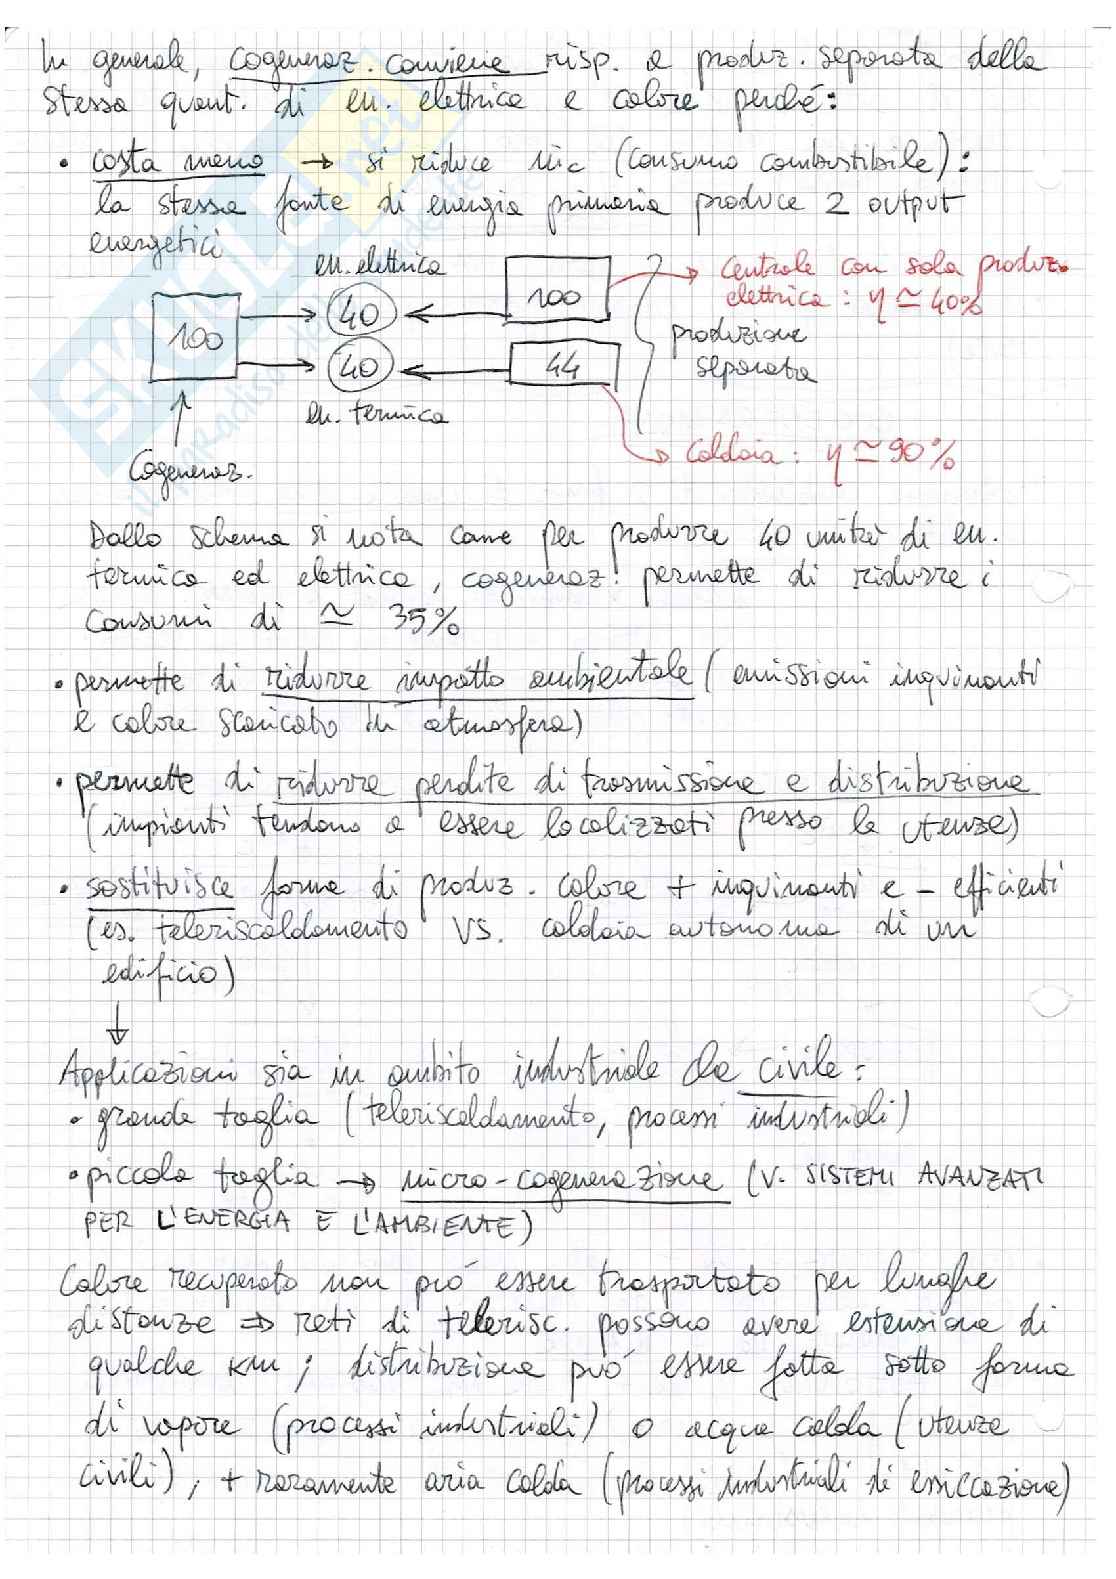 In generale, cogeneraz. conviene risp. a produz. separata della
stessa quant. di en. elettrica e calore perché:
• costa meno → si riduce ṁc (consumo combustibile):
la stessa fonte di energia primaria produce 2 output
energetici
en. elettrica
100
40
100
centrale con sola produz.
elettrica: η ≃ 40%
produzione
separata
40
44
en. termica
caldaia: η ≃ 90%
Cogeneraz.
Dallo schema si nota come per produrre 40 unità di en.
termica ed elettrica, cogeneraz. permette di ridurre i
consumi di ≃ 35%
• permette di ridurre impatto ambientale (emissioni inquinanti
e calore scaricato in atmosfera)
• permette di ridurre perdite di trasmissione e distribuzione
(impianti tendono a essere localizzati presso le utenze)
• sostituisce forme di produz. calore + inquinanti e - efficienti
(es. teleriscaldamento VS. caldaia autonoma di un
edificio)
↓
Applicazioni sia in ambito industriale che civile:
• grande taglia (teleriscaldamento, processi industriali)
• piccola taglia → micro-cogenerazione (V. SISTEMI AVANZATI
PER L'ENERGIA E L'AMBIENTE)
Calore recuperato non può essere trasportato per lunghe
distanze ⇒ reti di telerisc. possono avere estensione di
qualche km; distribuzione può essere fatta sotto forma
di vapore (processi industriali) o acqua calda (utenze
civili), + raramente aria calda (processi industriali di essiccazione)
SKUOLA.net
il paradiso dello studente